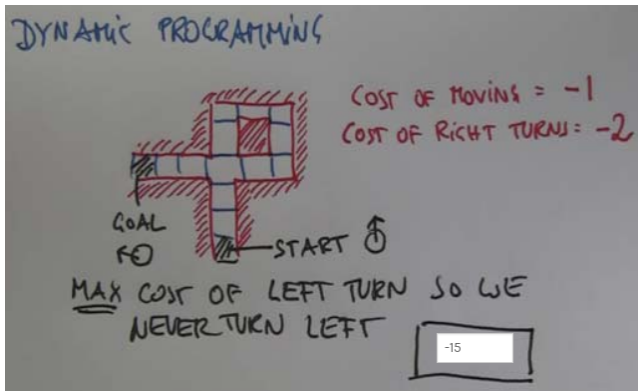 DYNAMIC PROGRAMMING
COST OF MOVING = -1
COST OF RIGHT TURNS = -2
GOAL
START
MAX COST OF LEFT TURN SO WE
NEVER TURN LEFT
-15